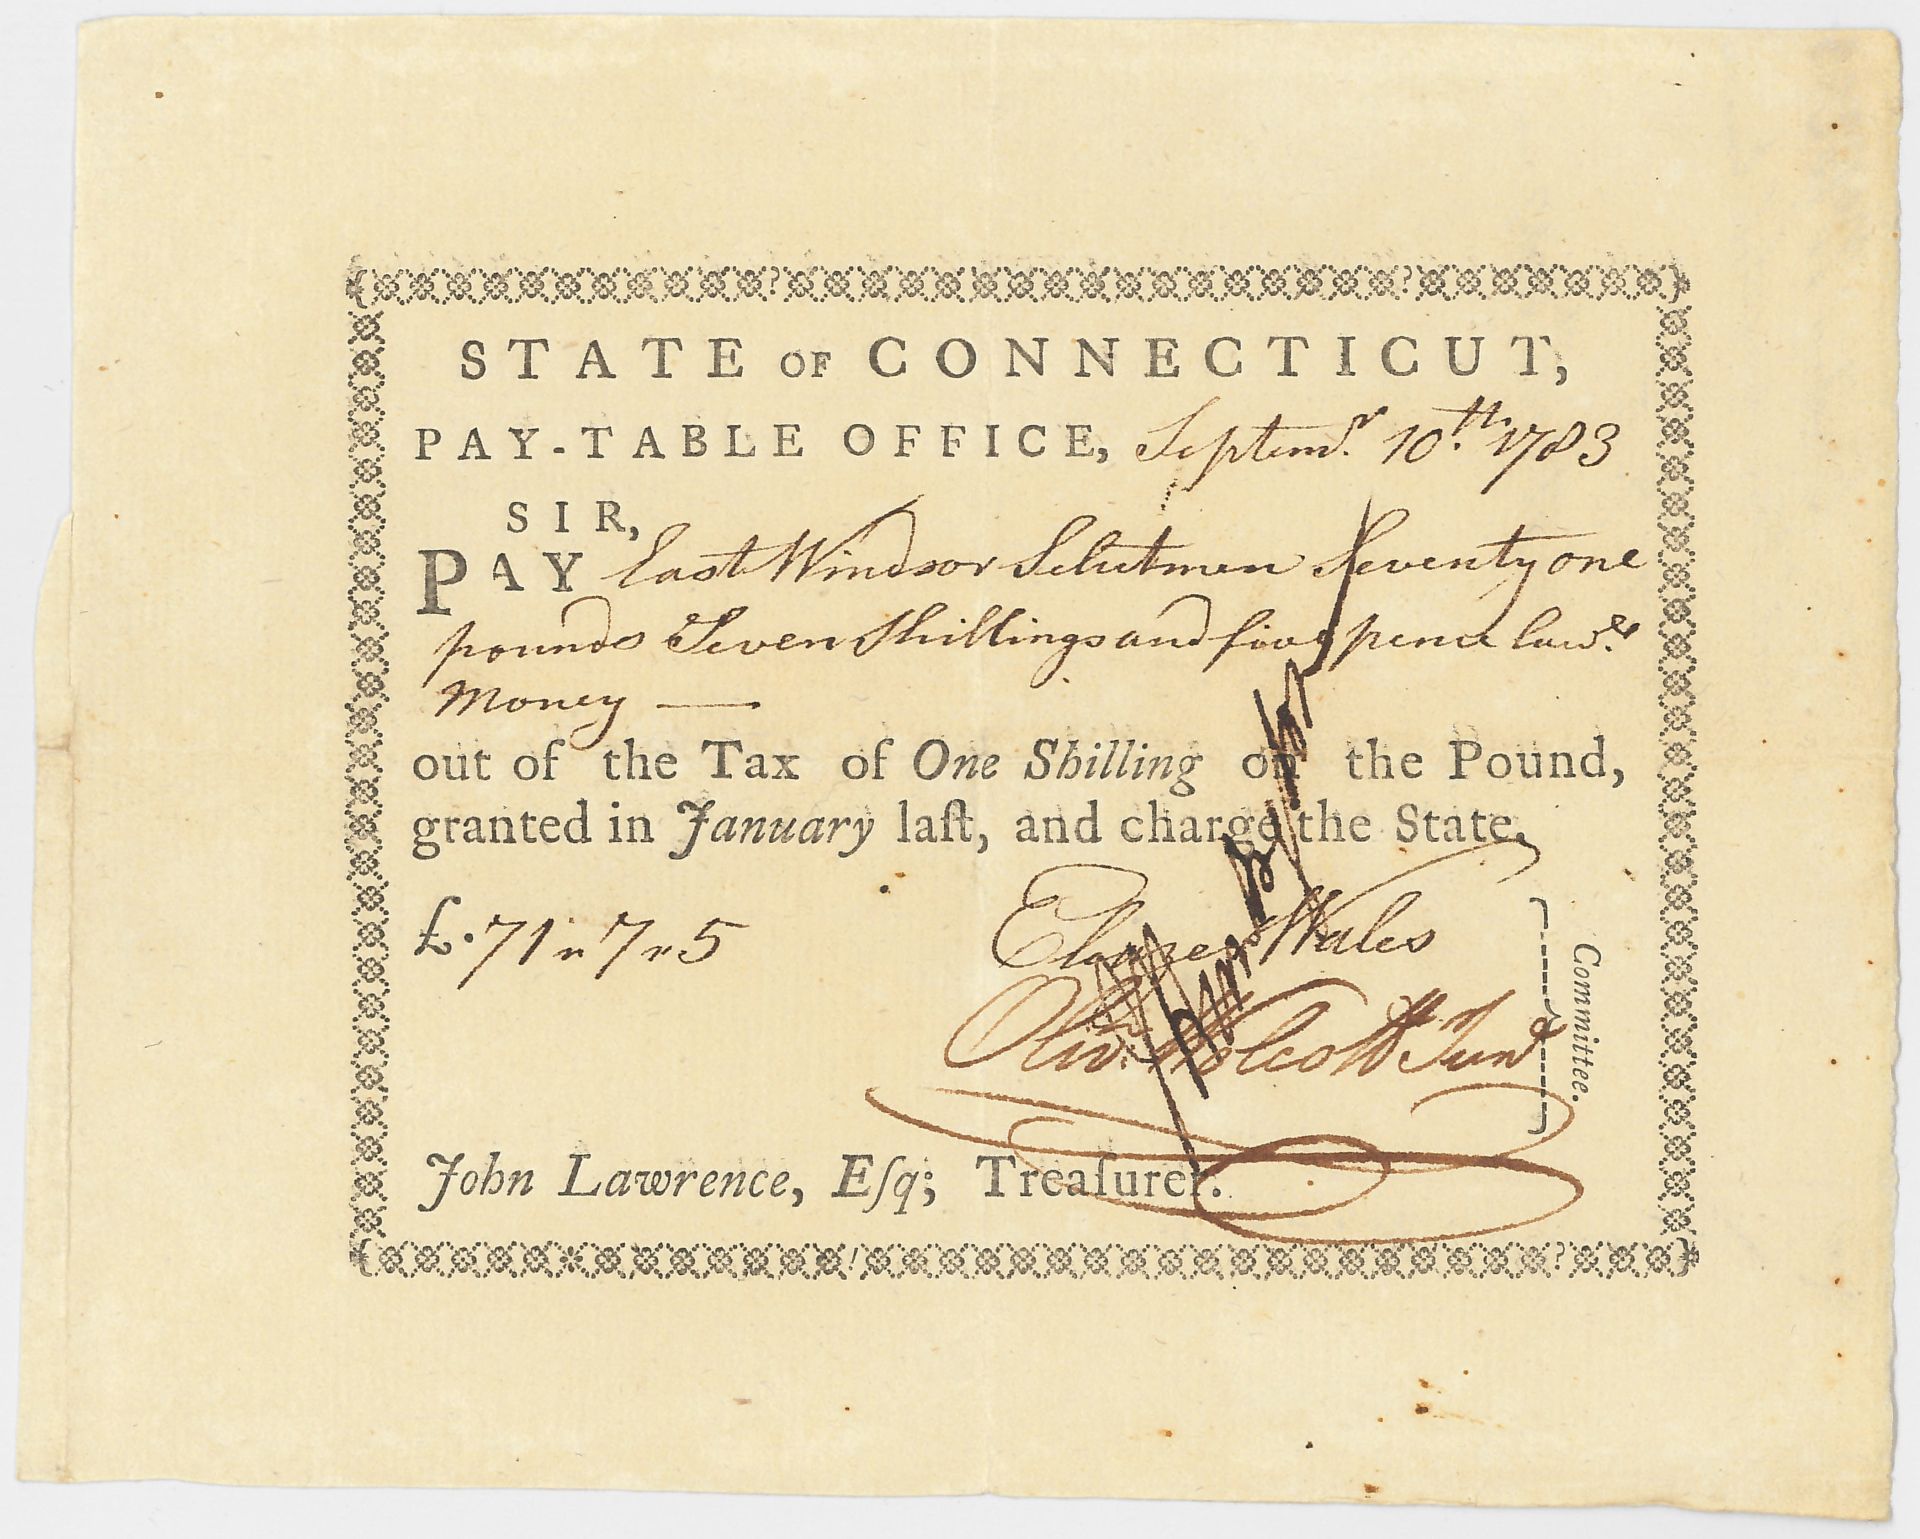 STATE OF CONNECTICUT,
PAY-TABLE OFFICE, Septemr. 10th. 1783
SIR,
PAY East Windsor Selectmen Seventy one
pounds Seven Shillings and five pence law.
Money —
out of the Tax of One Shilling on the Pound,
granted in January laſt, and charge the State.
£. 71 „ 7 „ 5
Eleazer Wales
Olivr. Wolcott Junr
Committee.
John Lawrence, Eſq; Treaſurer.